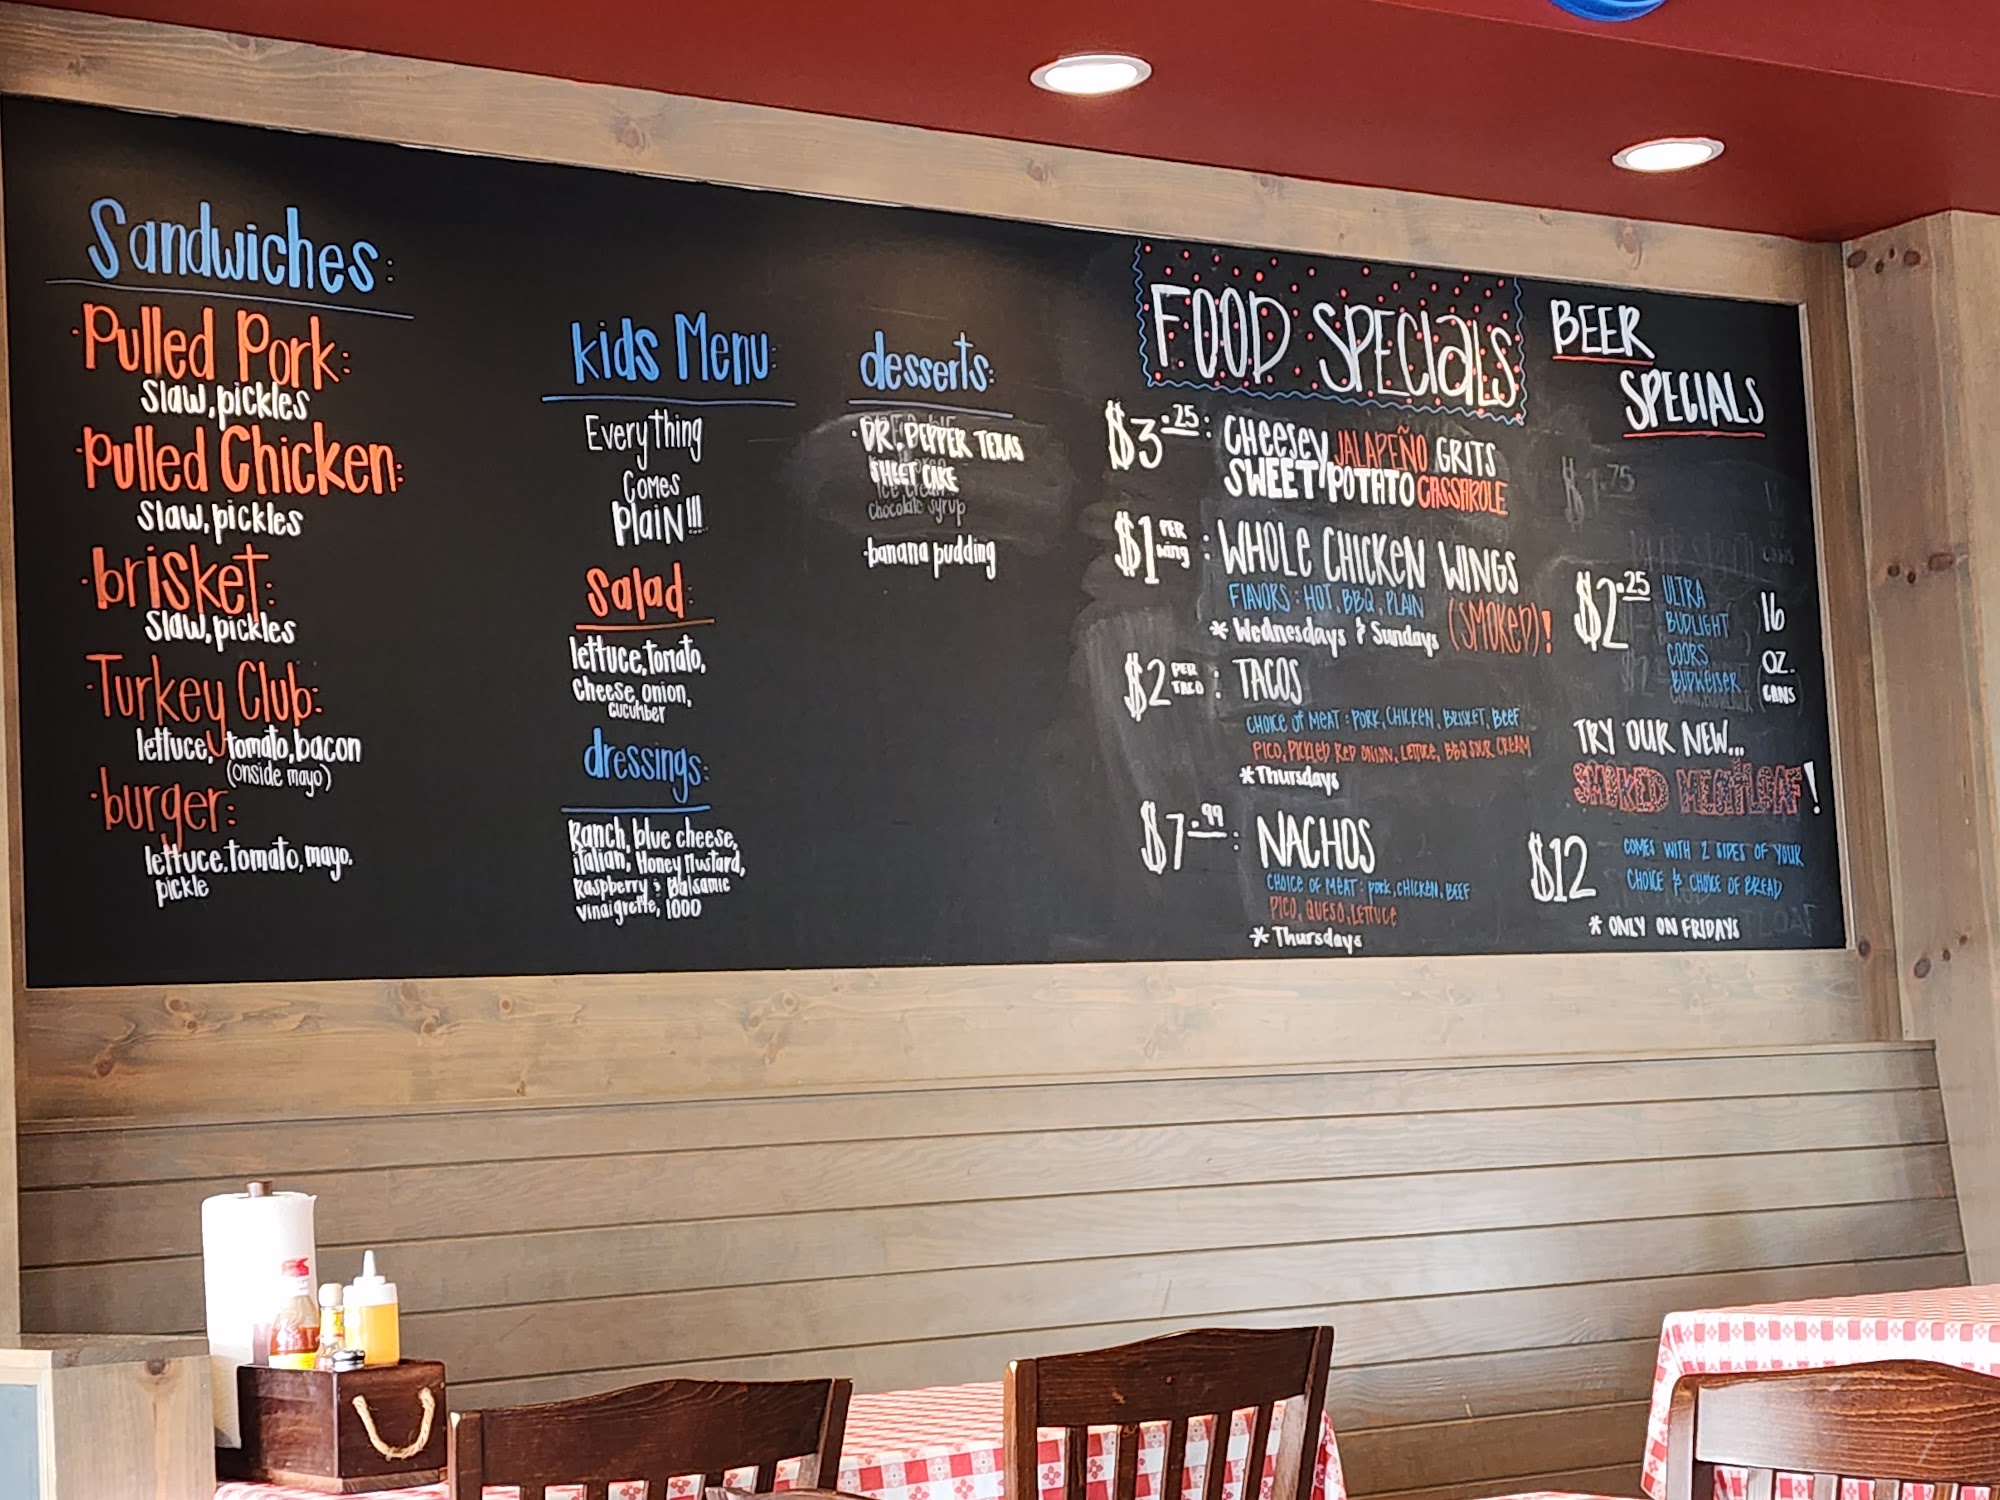 Sandwiches:
·Pulled Pork:
Slaw, pickles
·Pulled Chicken:
Slaw, pickles
·brisket:
Slaw, pickles
·Turkey Club:
lettuce, tomato, bacon
(onside mayo)
·burger:
lettuce, tomato, mayo,
pickle
kids Menu:
Everything
Comes
Plain!!!
Salad:
lettuce, tomato,
Cheese, onion,
cucumber
dressings:
Ranch, blue cheese,
italian, Honey Mustard,
Raspberry & Balsamic
vinaigrette, 1000
desserts:
·DR. PEPPER TEXAS
SHEET CAKE
ice cream
chocolate syrup
·banana pudding
FOOD SPECIALS
$3.25: CHEESEY JALAPEÑO GRITS
SWEET POTATO CASSAROLE
$1 PER wing: WHOLE CHICKEN WINGS
FLAVORS: HOT, BBQ, PLAIN (SMOKED)!
* Wednesdays & Sundays
$2 PER TACO: TACOS
CHOICE OF MEAT: PORK, CHICKEN, BRISKET, BEEF
PICO, PICKLED RED ONION, LETTUCE, BBQ SOUR CREAM
* Thursdays
$7.99: NACHOS
CHOICE OF MEAT: PORK, CHICKEN, BEEF
PICO, QUESO, LETTUCE
* Thursdays
BEER
SPECIALS
$1.75
$2.25 ULTRA
BUDLIGHT
COORS
BUDWEISER
16
OZ.
CANS
TRY OUR NEW...
SMOKED MEATLOAF!
$12 COMES WITH 2 SIDES OF YOUR
CHOICE & CHOICE OF BREAD
* ONLY ON FRIDAYS